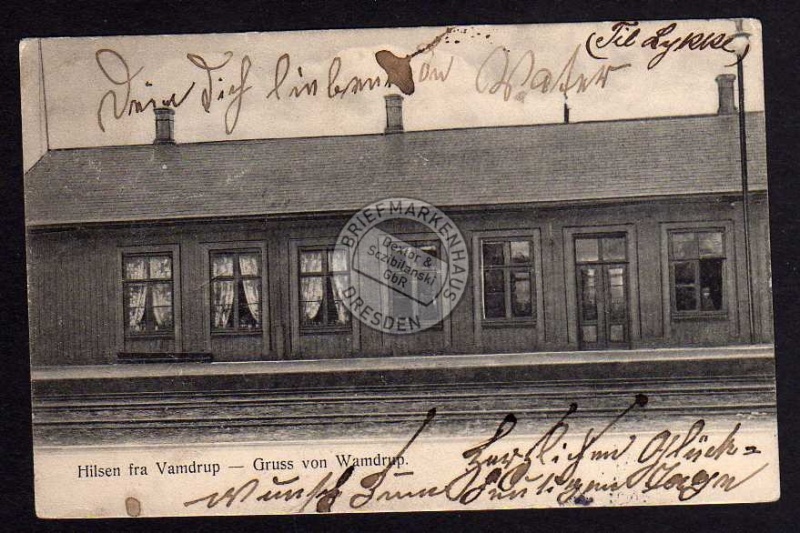 (Til Lykke)
Dein dich liebender Vater
BRIEFMARKENHAUS
Dextor &
Szibilanski
GbR
DRESDEN
Hilsen fra Vamdrup — Gruss von Wamdrup.
Herzlichen Glück=
wunsch zum heutigen Tage